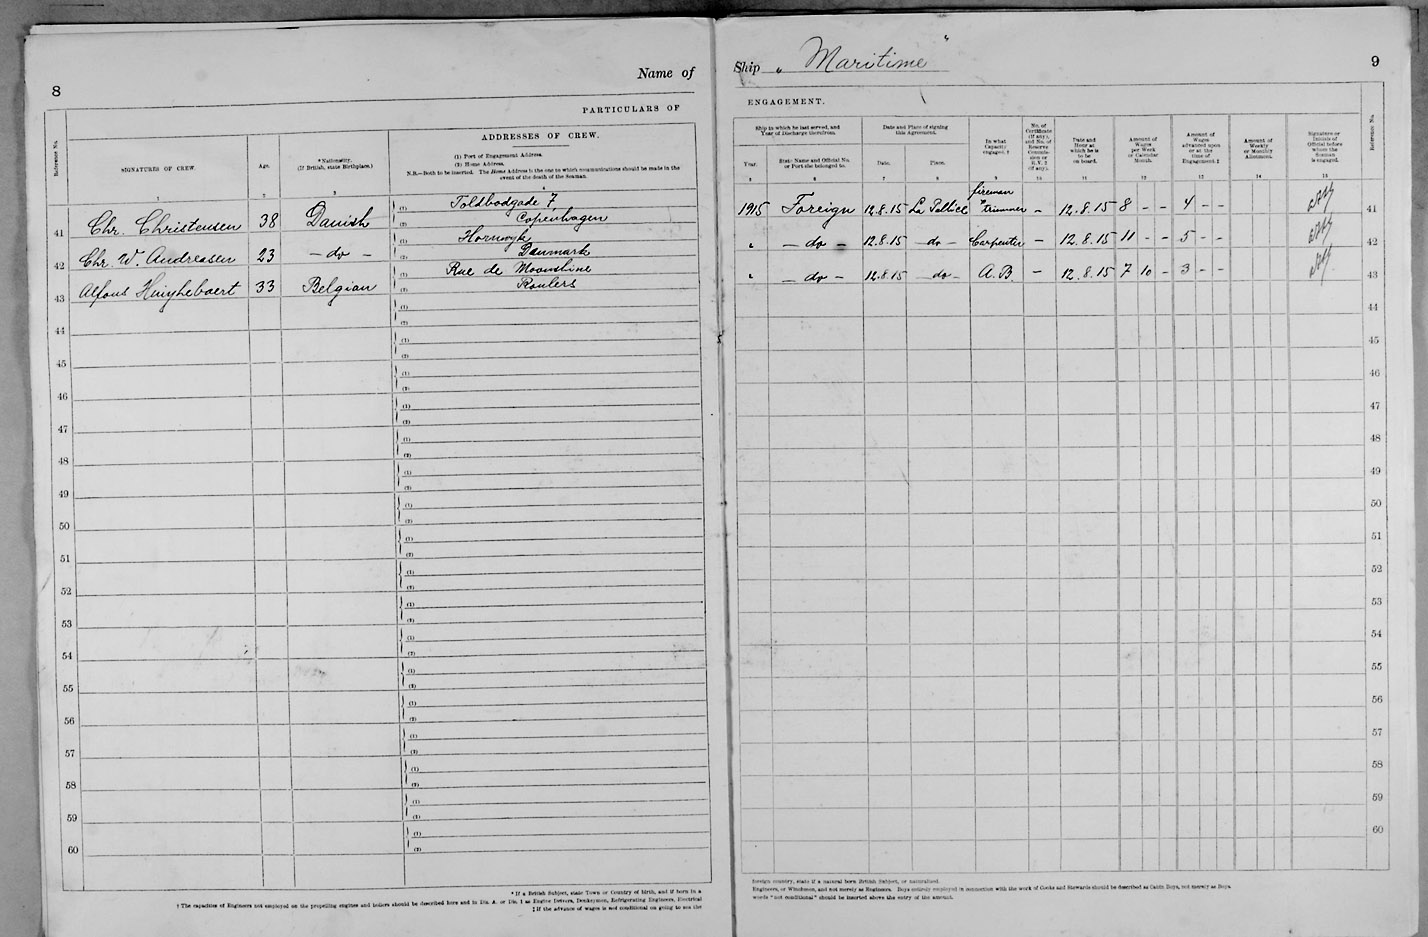 8
Name of
PARTICULARS OF
Reference No.
SIGNATURES OF CREW.
Age.
*Nationality.
(If British, state Birthplace.)
ADDRESSES OF CREW.
(1) Port of Engagement Address.
(2) Home Address.
N.B.—Both to be inserted. The Home Address is the one to which communications should be made in the
event of the death of the Seaman.
1
2
3
4
41 Chr. Christensen 38 Danish (1) Toldbodgade 7
(2) Copenhagen
42 Chr. W. Andreasen 23 – do – (1)
(2) Danmark
43 Alfons Huyghebaert 33 Belgian (1) Rue de Moonshine
(2) Roulers
44 (1)
(2)
45 (1)
(2)
46 (1)
(2)
47 (1)
(2)
48 (1)
(2)
49 (1)
(2)
50 (1)
(2)
51 (1)
(2)
52 (1)
(2)
53 (1)
(2)
54 (1)
(2)
55 (1)
(2)
56 (1)
(2)
57 (1)
(2)
58 (1)
(2)
59 (1)
(2)
60 (1)
(2)
* If a British Subject, state Town or Country of birth, and if born in a
† The capacities of Engineers not employed on the propelling engines and boilers should be described here and in Dis. A. or Dis. 1 as Engine Drivers, Donkeymen, Refrigerating Engineers, Electrical
‡ If the advance of wages is not conditional on going to sea the
Ship "Maritime"
9
ENGAGEMENT.
Ship in which he last served, and
Year of Discharge therefrom.
Year.
State Name and Official No.
or Port she belonged to.
Date and Place of signing
this Agreement.
Date.
Place.
In what
Capacity
engaged. †
No. of
Certificate
(if any),
and No. of
Reserve
Commis-
sion or
R.V. 2
(if any).
Date and
Hour at
which he is
to be
on board.
Amount of
Wages
per Week
or Calendar
Month.
Amount of
Wages
advanced upon
or at the
time of
Engagement. ‡
Amount of
Weekly
or Monthly
Allotment.
Signature or
Initials of
Official before
whom the
Seaman
is engaged.
Reference No.
5
6
7
8
9
10
11
12
13
14
15
fireman
1915 Foreign 12.8.15 La Pallice " trimmer – 12.8.15 8 – – 4 – – 41
" – do – 12.8.15 – do – Carpenter – 12.8.15 11 – – 5 – – 42
" – do – 12.8.15 – do – A.B. – 12.8.15 7 10 – 3 – – 43
44
45
46
47
48
49
50
51
52
53
54
55
56
57
58
59
60
foreign country, state if a natural born British Subject, or naturalised.
Engineers, or Winchmen, and not merely as Engineers. Boys entirely employed in connection with the work of Cooks and Stewards should be described as Cabin Boys, not merely as Boys.
words "not conditional" should be inserted above the entry of the amount.